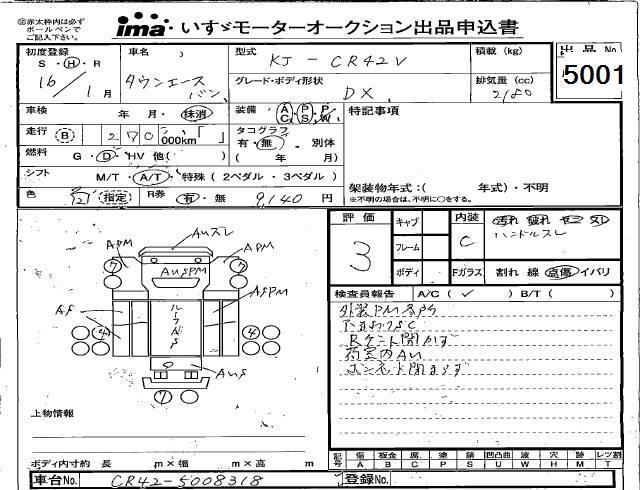 ※赤太枠内は必ず
ボールペンで
ご記入下さい。
ima いすゞモーターオークション出品申込書
初度登録 S・H・R 16/1月
車名 タウンエースバン
型式 KJ-CR42V
積載(kg)
出品No 5001
グレード・ボディ形状 DX
排気量(cc) 2180
車検 年 月・抹消
装備 AC PS PW
特記事項
走行 B 270,000km
タコグラフ 有・無 別体 ( 年 月)
燃料 G・D・HV 他( )
シフト M/T・A/T・特殊(2ペダル・3ペダル)
架装物年式:( 年式)・不明
※不明の場合は、不明に○をする。
色 指定 R券 有・無 9,140円
評価 3
キャブ
フレーム
ボディ
内装 C
汚れ 破れ
ハンドルスレ
Fガラス 割れ 線 点傷 イバリ
Auスレ
APM
APM
AuSPM
ASPM
AS
ルーフAS
AuS
7
7
4
4
7
検査員報告 A/C(✓) B/T( )
外装PM多門
下まわりSC
Rゲント開かず
荷室内AU
ボンネト開きます
上物情報
ボディ内寸約 長 m×幅 m×高 m
記号 傷 板金 腐 塗 錆 凹凸曲 波 穴 跡 レツ割
A B C P S U W H M T
車台No. CR42-5008318
登録No.